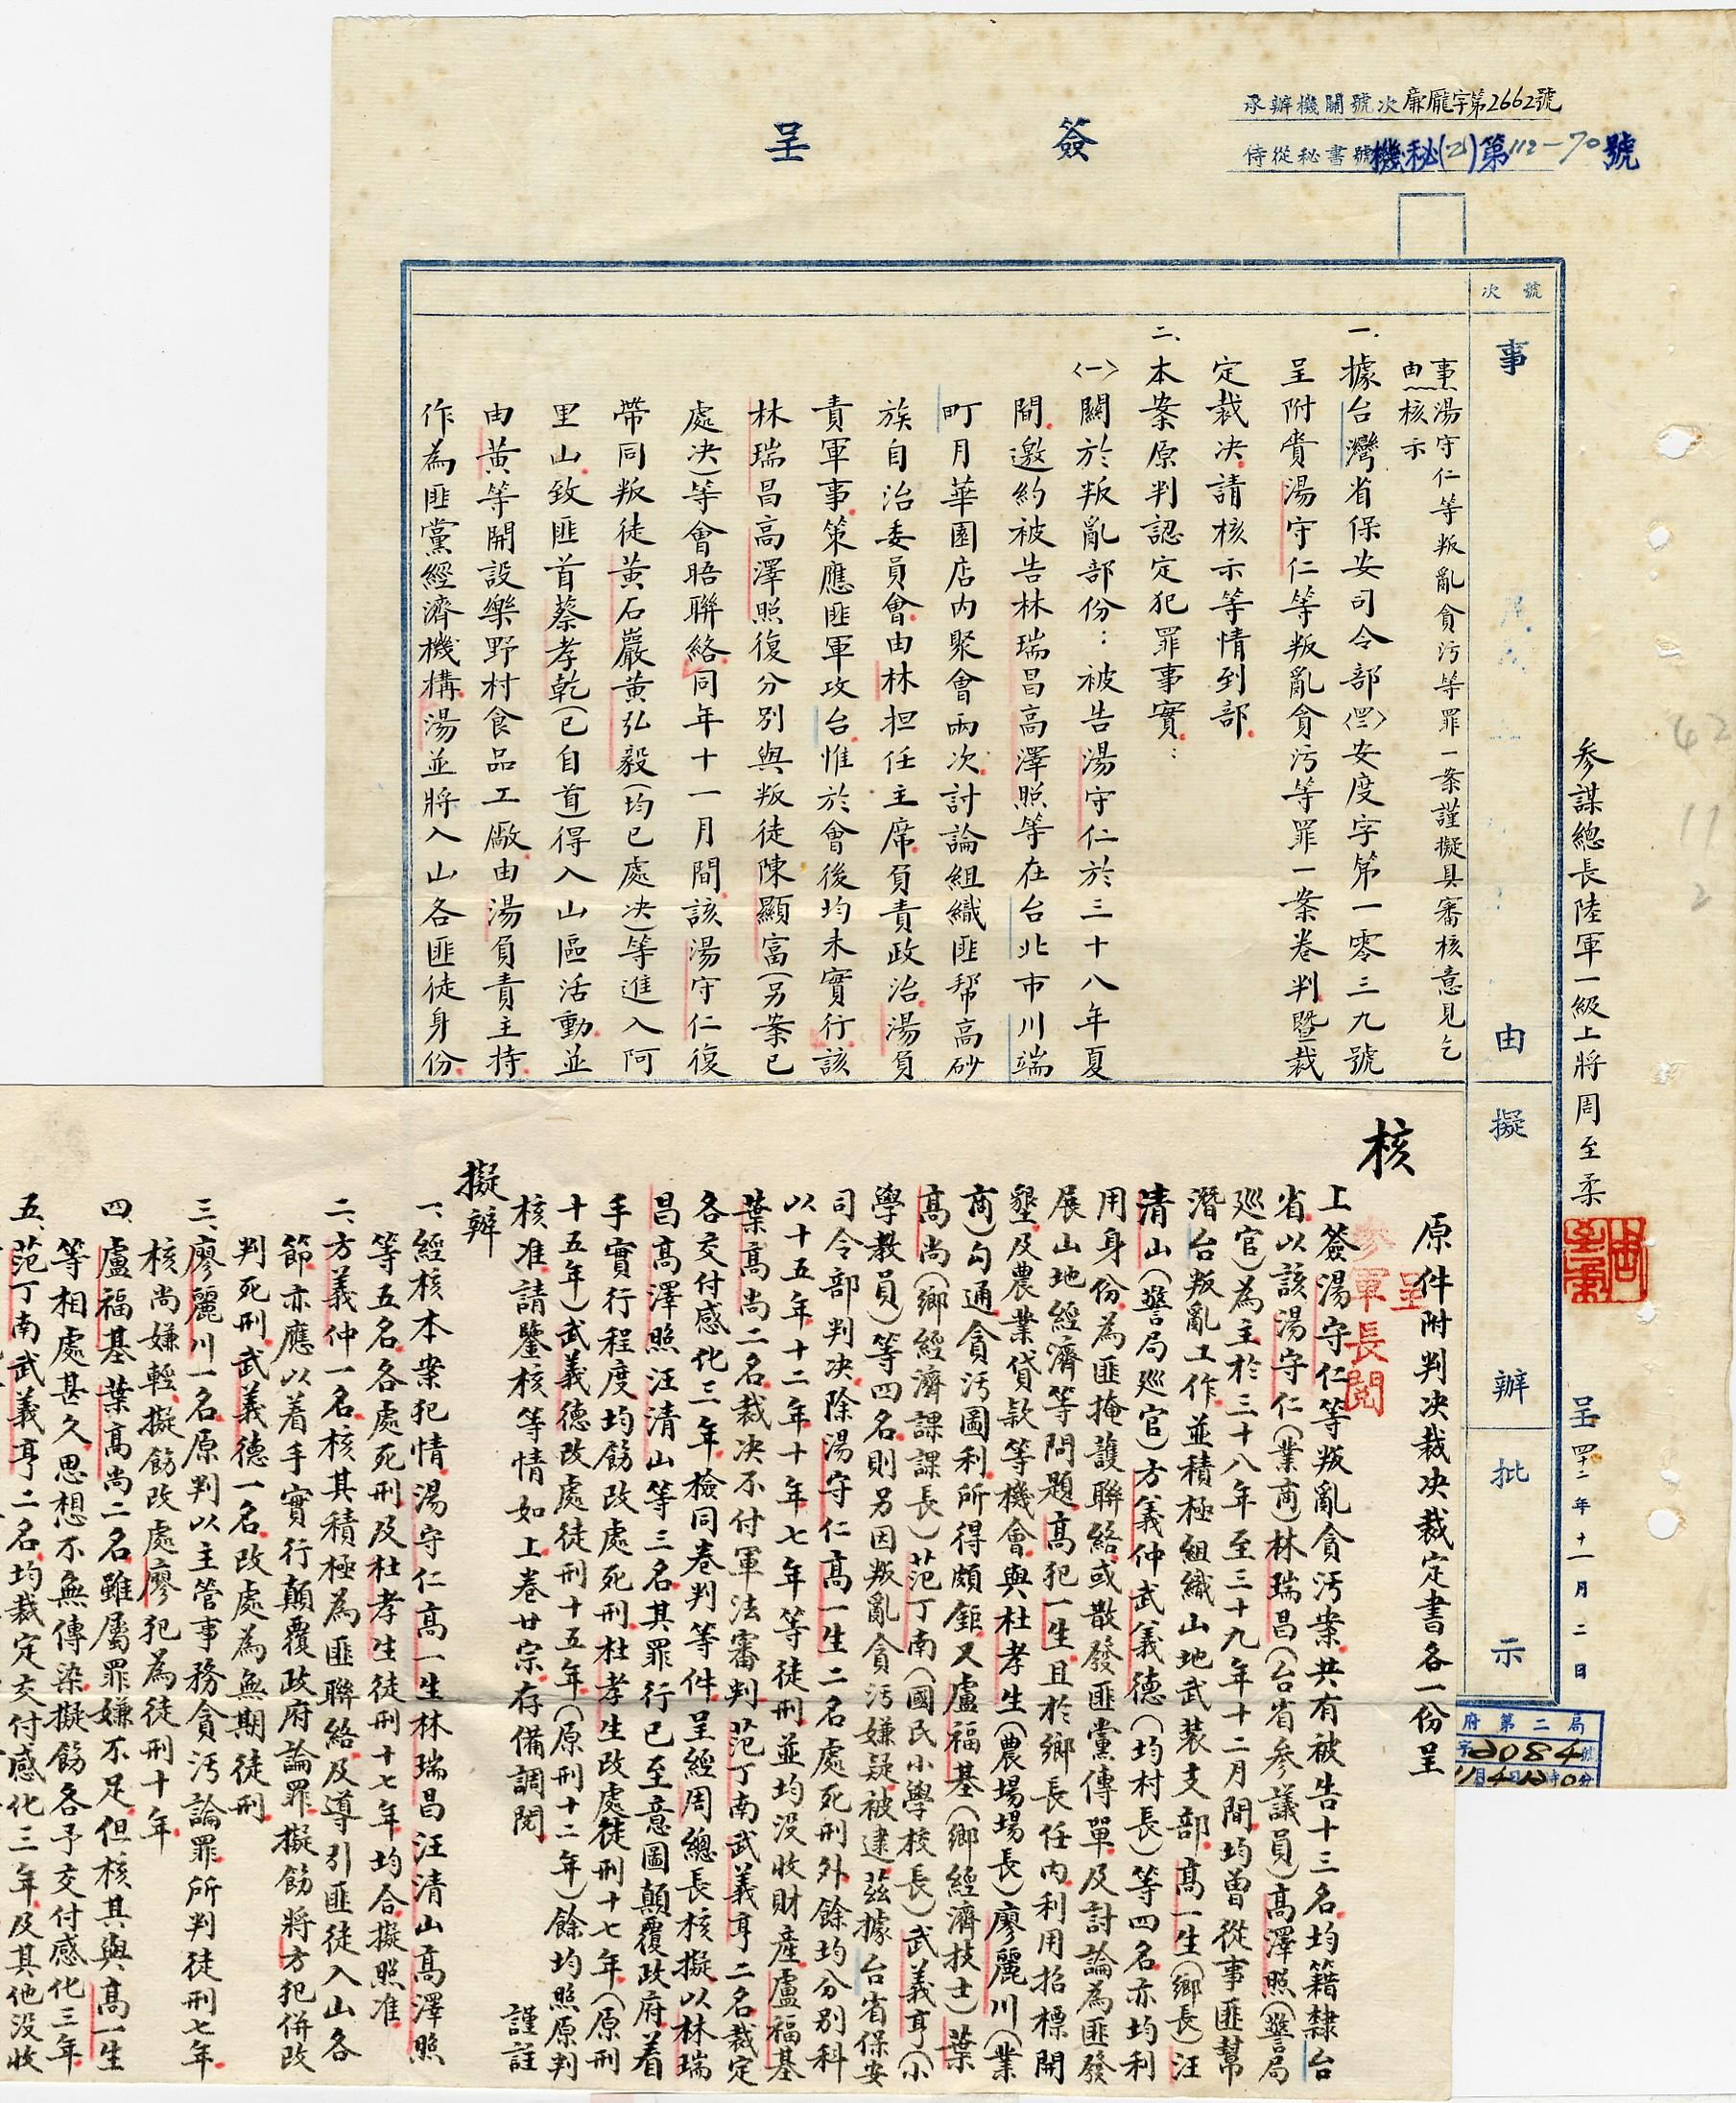 簽呈
承辦機關號次 廉龎字第2662號
侍從秘書號 機秘(21)第112-70號
號次
事由
擬辦
批示
參謀總長陸軍一級上將周至柔
呈 四十二年十一月二日
事由:湯守仁等叛亂貪污等罪一案謹擬具審核意見乞
核示
一、據台灣省保安司令部〈四二〉安度字第一零三九號
呈附賫湯守仁等叛亂貪污等罪一案卷判暨裁
定裁決請核示等情到部
二、本案原判認定犯罪事實:
〈一〉關於叛亂部份:被告湯守仁於三十八年夏
間邀約被告林瑞昌高澤照等在台北市川端
町月華園店內聚會兩次討論組織匪幫高砂
族自治委員會由林担任主席負責政治湯負
責軍事策應匪軍攻台惟於會後均未實行該
林瑞昌高澤照復分別與叛徒陳顯富(另案已
處決)等會晤聯絡同年十一月間該湯守仁復
帶同叛徒黃石巖黃弘毅(均已處決)等進入阿
里山致匪首蔡孝乾(已自首)得入山區活動並
由黃等開設樂野村食品工廠由湯負責主持
作為匪黨經濟機構湯並將入山各匪徒身份
原件附判決裁決裁定書各一份呈
核
呈
參軍長閱
上簽湯守仁等叛亂貪污案共有被告十三名均籍隸台
省以該湯守仁(業商)林瑞昌(台省參議員)高澤照(警局
巡官)為主於三十八年至三十九年十二月間均曾從事匪幫
潛台叛亂工作並積極組織山地武裝支部高一生(鄉長)汪
清山(警局巡官)方義仲武義德(均村長)等四名亦均利
用身份為匪掩護聯絡或散發匪黨傳單及討論為匪發
展山地經濟等問題高犯一生且於鄉長任內利用招標開
墾及農業貸款等機會與杜孝生(農場場長)廖麗川(業
商)勾通貪污圖利所得頗鉅又盧福基(鄉經濟技士)葉
高尚(鄉經濟課課長)范丁南(國民小學校長)武義亨(小
學教員)等四名則另因叛亂貪污嫌疑被逮茲據台省保安
司令部判決除湯守仁高一生二名處死刑外餘均分別科
以十五年十二年十年七年等徒刑並均沒收財產盧福基
葉高尚二名裁決不付軍法審判范丁南武義亨二名裁定
各交付感化三年檢同卷判等件呈經周總長核擬以林瑞
昌高澤照汪清山等三名其罪行已至意圖顛覆政府着
手實行程度均飭改處死刑杜孝生改處徒刑十七年(原刑
十五年)武義德改處徒刑十五年(原刑十二年)餘均照原判
核准請鑒核等情如上卷廿宗存備調閱 謹註
擬辦
一、經核本案犯情湯守仁高一生林瑞昌汪清山高澤照
等五名各處死刑及杜孝生徒刑十七年均合擬照准
二、方義仲一名核其積極為匪聯絡及導引匪徒入山各
節亦應以着手實行顛覆政府論罪擬飭將方犯併改
判死刑武義德一名改處為無期徒刑
三、廖麗川一名原判以主管事務貪污論罪所判徒刑七年
核尚嫌輕擬飭改處廖犯為徒刑十年
四、盧福基葉高尚二名雖屬罪嫌不足但核其與高一生
等相處甚久思想不無傳染擬飭各予交付感化三年
五、范丁南武義亨二名均裁定交付感化三年及其他沒收
府第二局
字2084號